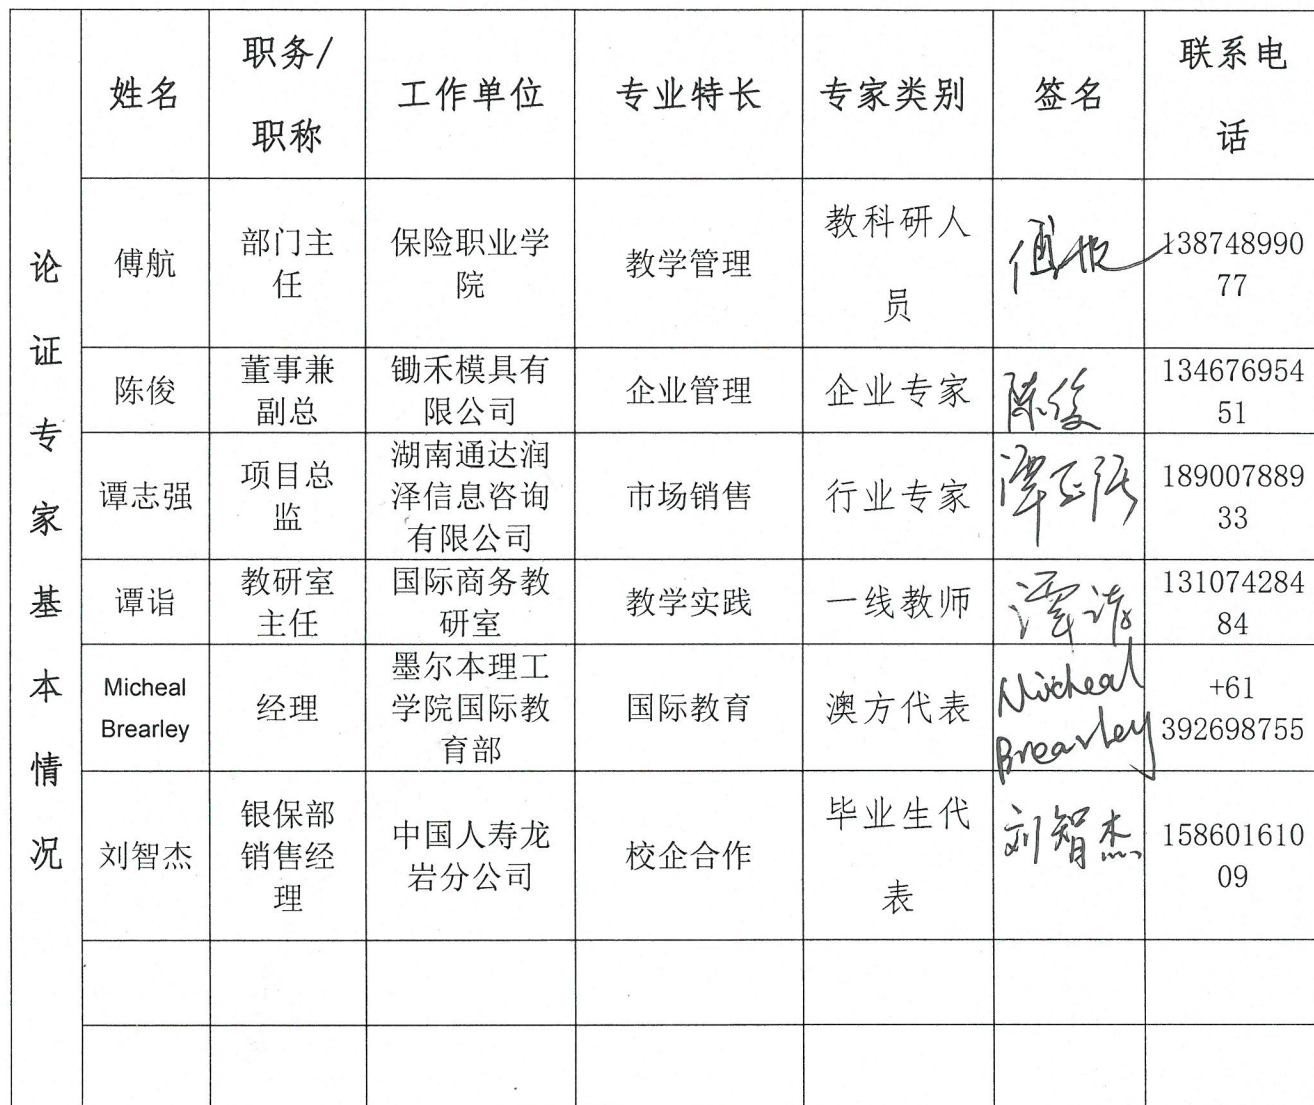 论
证
专
家
基
本
情
况
姓名
职务/
职称
工作单位
专业特长
专家类别
签名
联系电
话
傅航
部门主
任
保险职业学
院
教学管理
教科研人
员
傅航
138748990
77
陈俊
董事兼
副总
锄禾模具有
限公司
企业管理
企业专家
陈俊
134676954
51
谭志强
项目总
监
湖南通达润
泽信息咨询
有限公司
市场销售
行业专家
谭志强
189007889
33
谭诣
教研室
主任
国际商务教
研室
教学实践
一线教师
谭诣
131074284
84
Micheal
Brearley
经理
墨尔本理工
学院国际教
育部
国际教育
澳方代表
Micheal
Brearley
+61
392698755
刘智杰
银保部
销售经
理
中国人寿龙
岩分公司
校企合作
毕业生代
表
刘智杰
158601610
09